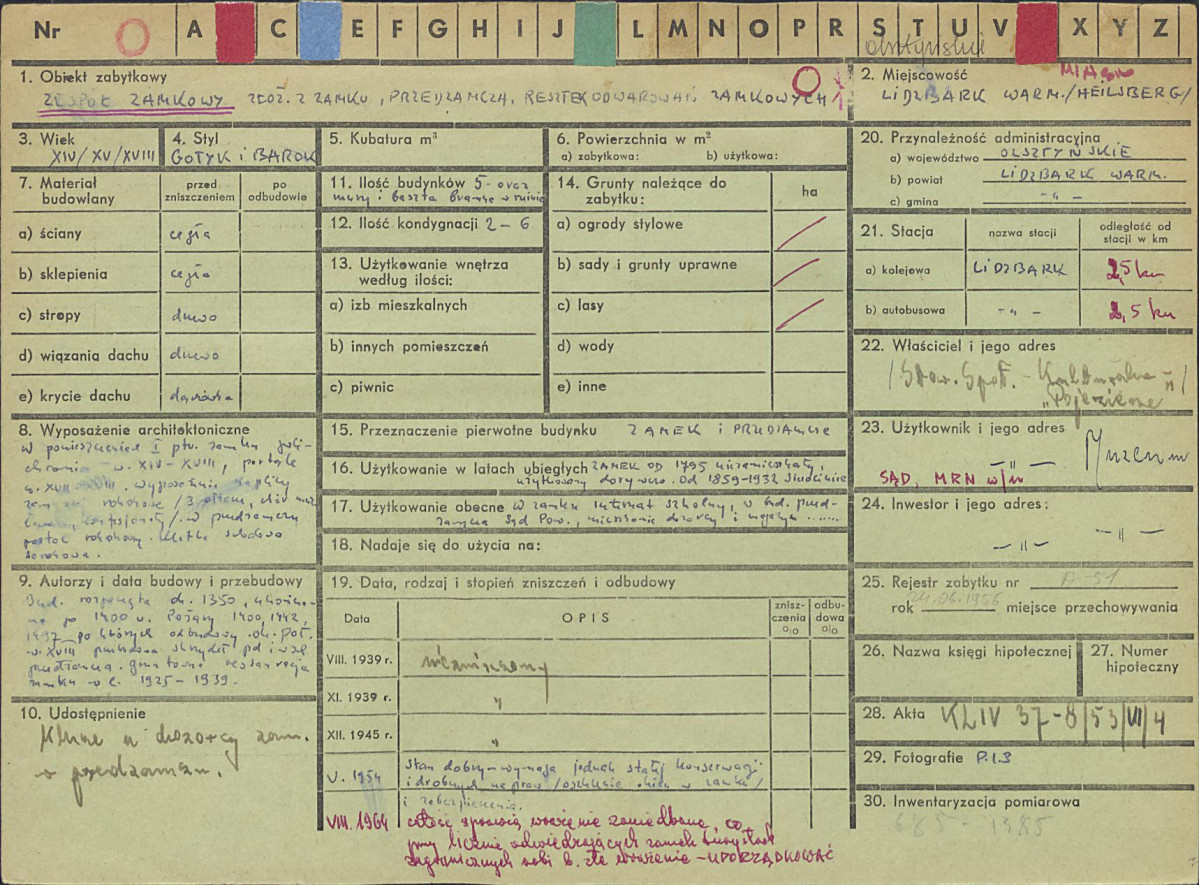 Nr O A C E F G H I J L M N O P R S T U V X Y Z
olsztyńskie
1. Obiekt zabytkowy
ZESPÓŁ ZAMKOWY ZŁOŻ. Z ZAMKU, PRZEDZAMCZA, RESZTEK OBWAROWAŃ ZAMKOWYCH
2. Miejscowość
MIASTO
LIDZBARK WARM. /HEILSBERG/
3. Wiek
XIV/XV/XVIII
4. Styl
GOTYK i BAROK
5. Kubatura m³
6. Powierzchnia w m²
a) zabytkowa: b) użytkowa:
7. Materiał budowlany
przed zniszczeniem
po odbudowie
a) ściany cegła
b) sklepienia cegła
c) stropy drewno
d) wiązania dachu drewno
e) krycie dachu dachówka
8. Wyposażenie architektoniczne
w pomieszczeniach I ptr. zamku poli-
chromia w. XIV-XVIII, portale
w. XVII-XVIII, wyposażenie kaplicy
rokokowe /3 ołtarze, chór muz.
/ w przedzamczu
portal rokokowy. Klatka schodowa
barokowa.
9. Autorzy i data budowy i przebudowy
Bud. rozpoczęta ok. 1350, ukończo-
na po 1400 r. Pożary 1400, 1442,
1497 po których odbudowy. ok. poł.
w. XVIII przebudowa skrzydeł pd i wsch
przedzamcza. gruntowna restauracja
zamku w l. 1925-1939.
10. Udostępnienie
Klucze u dozorcy zam.
w przedzamczu.
11. Ilość budynków 5 oraz
mury i baszta bramne w ruinie
12. Ilość kondygnacji 2-6
13. Użytkowanie wnętrza
według ilości:
a) izb mieszkalnych
b) innych pomieszczeń
c) piwnic
14. Grunty należące do
zabytku:
ha
a) ogrody stylowe
b) sady i grunty uprawne
c) lasy
d) wody
e) inne
15. Przeznaczenie pierwotne budynku ZAMEK i PRZEDZAMCZE
16. Użytkowanie w latach ubiegłych ZAMEK OD 1795 niezamieszkały,
użytkowany dorywczo. Od 1859-1932 sierociniec
17. Użytkowanie obecne w zamku internat szkolny, w bud. przed-
zamcza Sąd Pow., mieszkanie dozorcy i magazyn
18. Nadaje się do użycia na:
19. Data, rodzaj i stopień zniszczeń i odbudowy
Data OPIS znisz-czenia o/o odbu-dowa o/o
VIII. 1939 r. niezniszczony
XI. 1939 r. "
XII. 1945 r. "
V. 1954 Stan dobry-wymaga jednak stałej konserwacji
i drobnych napraw /oszklenie okien w zamku/
i zabezpieczenia.
VIII. 1964 całość sprawia wrażenie zaniedbane, co
przy licznie odwiedzających zamek turystach
zagranicznych robi b. złe wrażenie - UPORZĄDKOWAĆ
20. Przynależność administracyjna
a) województwo OLSZTYŃSKIE
b) powiat LIDZBARK WARM.
c) gmina - " -
21. Stacja
nazwa stacji
odległość od stacji w km
a) kolejowa LIDZBARK 2,5 km
b) autobusowa - " - 2,5 km
22. Właściciel i jego adres
/Stow. Społ. - Kulturalne -
"Pojezierze"/
23. Użytkownik i jego adres
- " - Muzeum
SĄD, MRN w/m
24. Inwestor i jego adres:
- " - - " -
25. Rejestr zabytku nr A-51
rok 24.06.1956 miejsce przechowywania
26. Nazwa księgi hipotecznej
27. Numer hipoteczny
28. Akta KL IV 37-8/53/VI/4
29. Fotografie P.1.3
30. Inwentaryzacja pomiarowa
685-1385